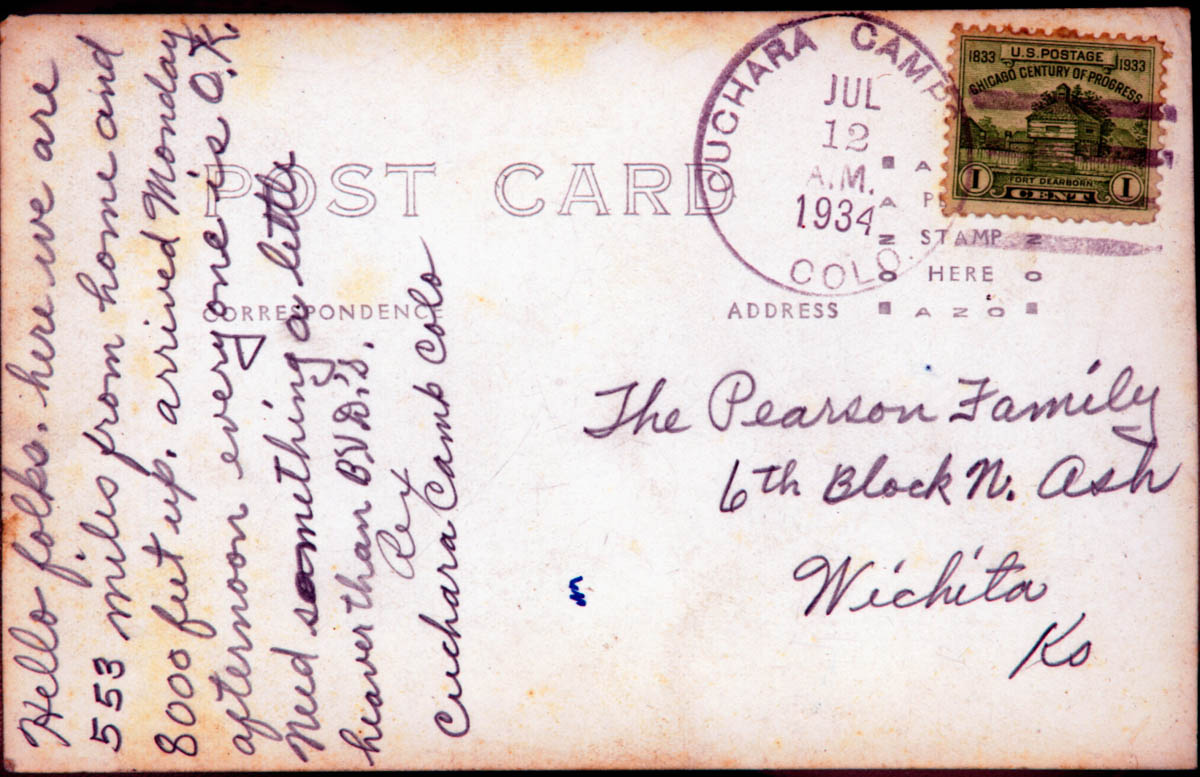 Hello folks. here we are
553 miles from home and
8000 feet up. arrived Monday
afternoon everyone is O.K.
Need something a little
heaver than B.V.D.'s.
Rex
Cuchara Camb Colo
POST CARD
CORRESPONDENCE
ADDRESS
CUCHARA CAMP
JUL
12
A.M.
1934
COLO.
1833 U.S. POSTAGE 1933
CHICAGO CENTURY OF PROGRESS
FORT DEARBORN
1 CENT 1
STAMP
HERE
AZO
The Pearson Family
6th Block N. Ash
Wichita
Ks